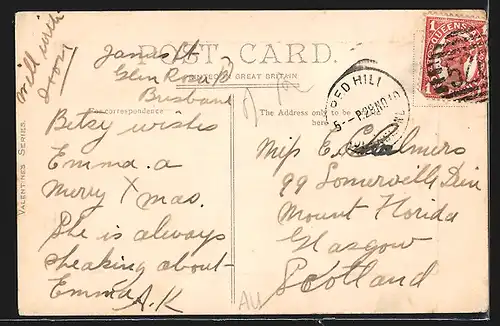 will write
soon
James St
Glen Rosa Rd
Brisbane
POST CARD.
GREAT BRITAIN
correspondence
The Address only to be
here
Betsy wishes
Emma. a
Merry Xmas.
She is always
speaking about
Emma A.K
Miss E. Chalmers
99 Somerville Driv
Mount Florida
Glasgow
Scotland
VALENTINES SERIES.
RED HILL
5-P 28 NO 10
1
QUEENSLAND
AU